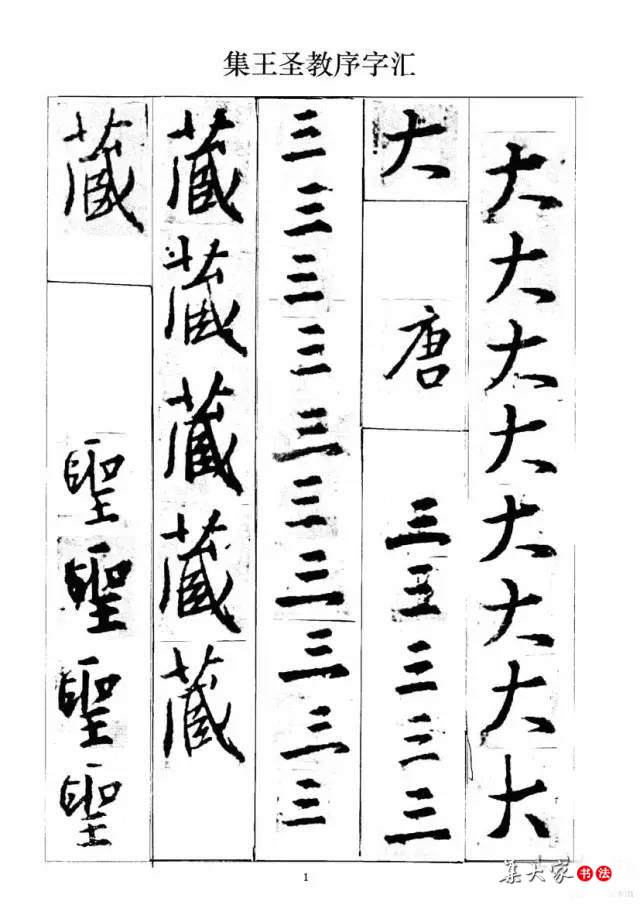 集王圣教序字汇
大大大大大大大大
大
唐
三三三三三
三三三三三三三三三三
藏藏藏藏藏
藏
聖聖聖聖
1
集大家书法